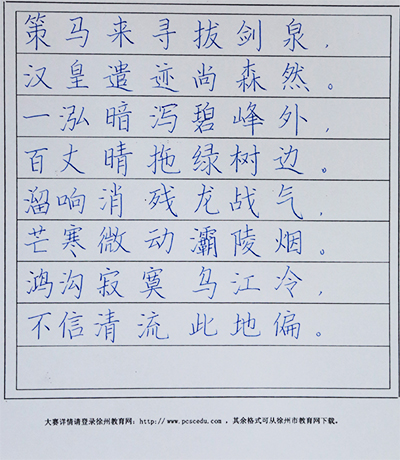 策马来寻拔剑泉，
汉皇遗迹尚森然。
一泓暗泻碧峰外，
百丈晴拖绿树边。
溜响消残龙战气，
芒寒微动灞陵烟。
鸿沟寂寞乌江冷，
不信清流此地偏。
大赛详情请登录徐州教育网：http://www.pcscedu.com，其余格式可从徐州市教育网下载。